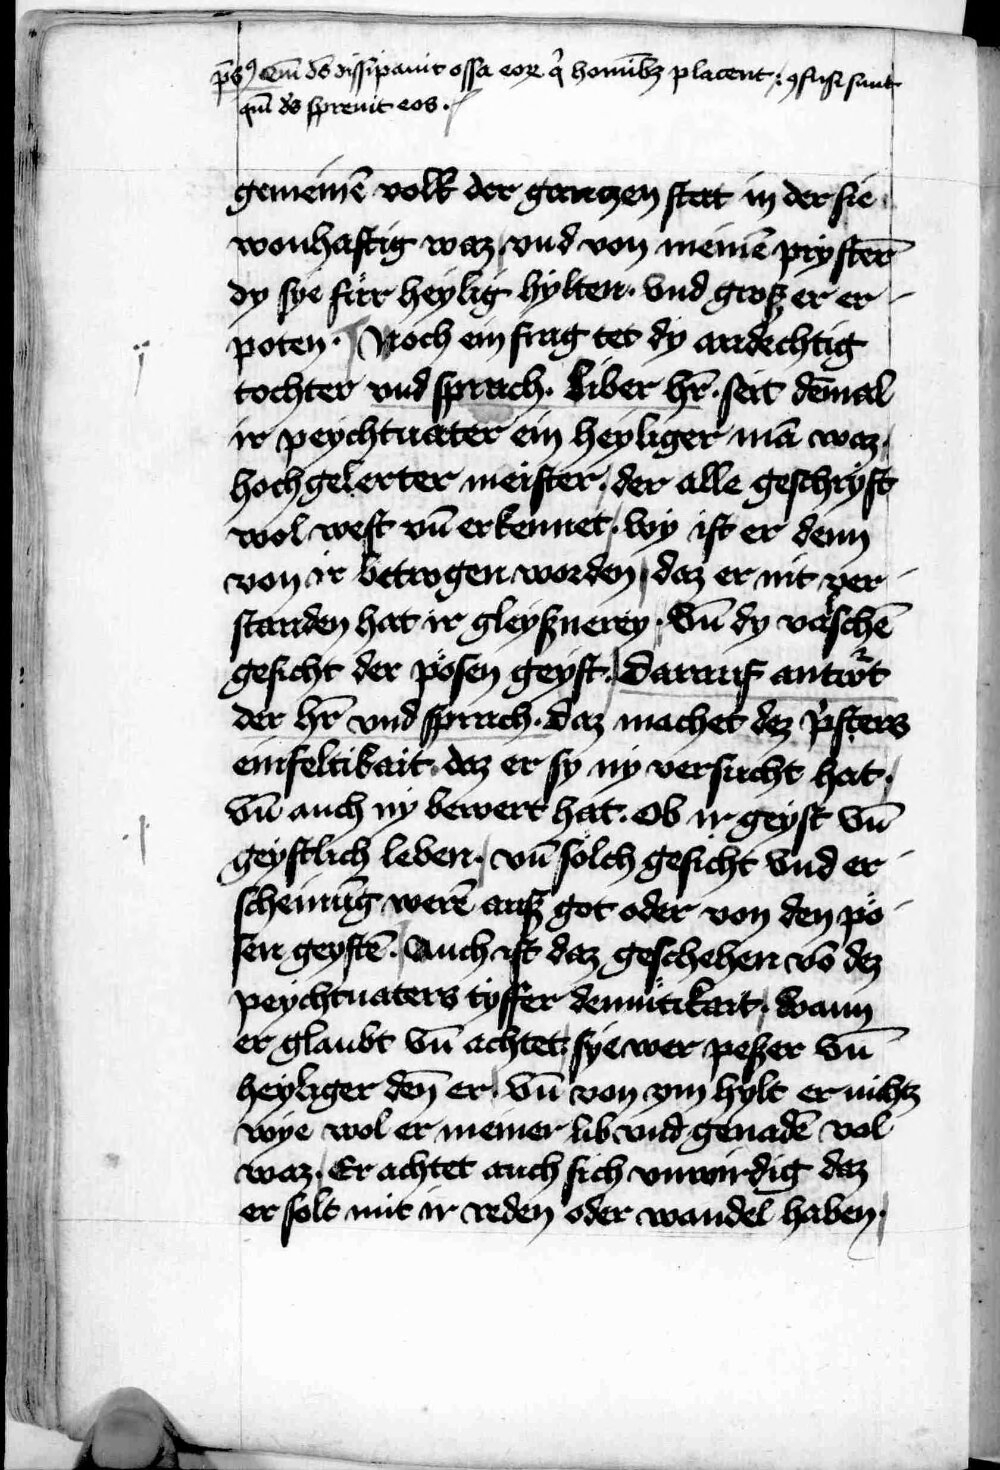 p̄s ꝰ Qm̄ ds̄ dissipauit ossa eoꝝ q̇ homībꝫ placent / ꝯfusi sunt
qm̄ ds̄ spreuit eos ·
gemeinē volk der gantzen stat in der sie
wonhaftig waz / vnd von meinē prystern̄
dy sye fu̇r heylig hylten · vnd groß er er
poten · Noch ein frag tet dy andechtig
tochter vnd sprach · Liber hr̄ · seit dēmal
ir peychtuater ein heyliger mā waz ·
hochgelerter meister · der alle geschryft
wol west vn̄ erkennet · wy ist er denn
von ir betrogen worden / daz er nit ver
standen hat ir gleyßnerey · Vn̄ dy valschē
gesicht der pösen geyst · Darauf antwͦrt
der hr̄ vnd sprach · Daz machet dez p̉sters
einfeltikait daz er sy ny versucht hat ·
vn̄ auch ny bewert hat · Ob ir geyst vn̄
geystlich leben · vn̄ sölch gesicht vnd er
scheinūg werē auß got oder von den pö
sen geystē · Auch ist daz geschehen vō dez
peychtuaters tyffer demütikait · wann
er glaubt vn̄ achtet sye wer peßer vn̄
heyliger den̄ er · vn̄ von ym hylt er nichtz
wye wol er meiner lib vnd genadē vol
waz · Er achtet auch sich vnwirdig daz
er solt mit ir reden oder wandel haben ·